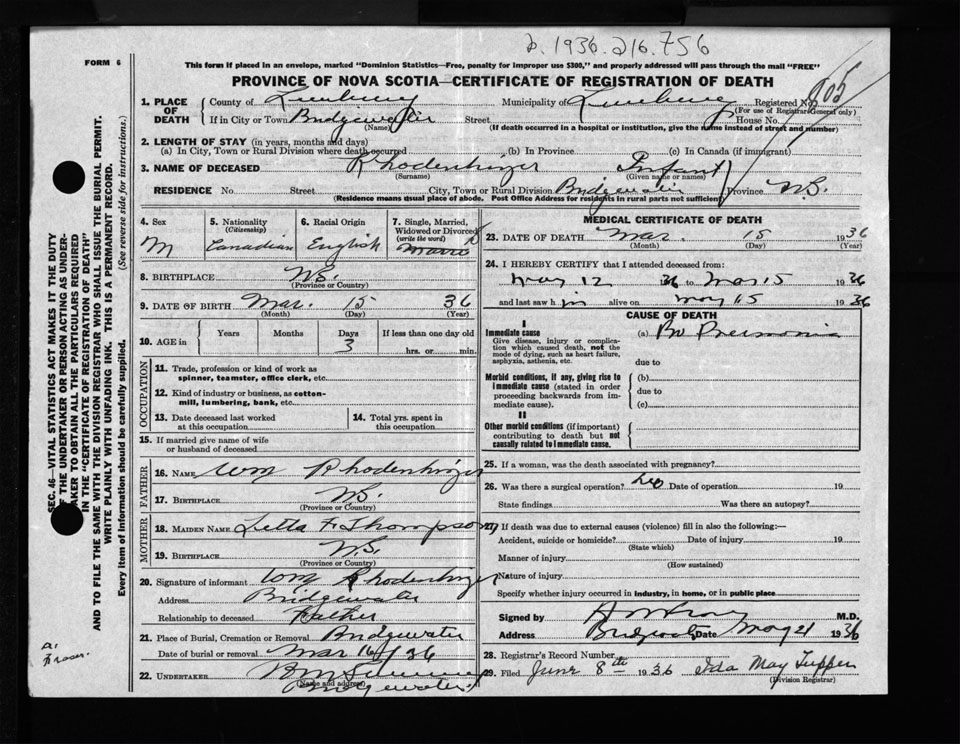 2. 1936.216.756
FORM 6
This form if placed in an envelope, marked "Dominion Statistics—Free, penalty for improper use $300," and properly addressed will pass through the mail "FREE"
PROVINCE OF NOVA SCOTIA—CERTIFICATE OF REGISTRATION OF DEATH
1. PLACE OF DEATH County of Lunenburg Municipality of Lunenburg Registered No. 105
(For use of Registrar General only)
If in City or Town Bridgewater Street House No.
(Name) (If death occurred in a hospital or institution, give the name instead of street and number)
2. LENGTH OF STAY (in years, months and days)
(a) In City, Town or Rural Division where death occurred (b) In Province (c) In Canada (if immigrant)
3. NAME OF DECEASED Rhodenhizer Infant
(Surname) (Given name or names)
RESIDENCE No. Street City, Town or Rural Division Bridgewater Province N.S.
(Residence means usual place of abode. Post Office Address for residents in rural parts not sufficient)
4. Sex M
5. Nationality (Citizenship) Canadian
6. Racial Origin English
7. Single, Married, Widowed or Divorced (write the word)
8. BIRTHPLACE N.S.
(Province or Country)
9. DATE OF BIRTH Mar. 15 36
(Month) (Day) (Year)
10. AGE in Years Months Days 3 If less than one day old hrs. or min.
OCCUPATION
11. Trade, profession or kind of work as spinner, teamster, office clerk, etc.
12. Kind of industry or business, as cotton-mill, lumbering, bank, etc.
13. Date deceased last worked at this occupation
14. Total yrs. spent in this occupation
15. If married give name of wife or husband of deceased
FATHER
16. NAME Wm Rhodenhizer
17. BIRTHPLACE N.S.
(Province or Country)
MOTHER
18. MAIDEN NAME Letta F. Thompson
19. BIRTHPLACE N.S.
(Province or Country)
20. Signature of informant Wm Rhodenhizer
Address Bridgewater
Relationship to deceased Father
21. Place of Burial, Cremation or Removal Bridgewater
Date of burial or removal Mar 16/36
22. UNDERTAKER
(Name and address) Bridgewater
MEDICAL CERTIFICATE OF DEATH
23. DATE OF DEATH Mar. 15 1936
(Month) (Day) (Year)
24. I HEREBY CERTIFY that I attended deceased from:
May 12 36 to Mar 15 1936
and last saw him alive on May 15 1936
CAUSE OF DEATH
I
Immediate cause (a) Br Pneumonia
Give disease, injury or complication which caused death, not the mode of dying, such as heart failure, asphyxia, asthenia, etc.
due to
Morbid conditions, if any, giving rise to immediate cause (stated in order proceeding backwards from immediate cause).
(b)
due to
(c)
II
Other morbid conditions (if important) contributing to death but not causally related to immediate cause.
25. If a woman, was the death associated with pregnancy?
26. Was there a surgical operation? No Date of operation 19
State findings Was there an autopsy?
27. If death was due to external causes (violence) fill in also the following:—
Accident, suicide or homicide? Date of injury 19
(State which)
Manner of injury
(How sustained)
Nature of injury
Specify whether injury occurred in industry, in home, or in public place
Signed by M.D.
Address Bridgewater Date May 21 1936
28. Registrar's Record Number
29. Filed June 8th 1936 Ida May Tupper
(Division Registrar)
SEC. 46—VITAL STATISTICS ACT MAKES IT THE DUTY
OF THE UNDERTAKER OR PERSON ACTING AS UNDER-
TAKER TO OBTAIN ALL THE PARTICULARS REQUIRED
IN THE "CERTIFICATE OF REGISTRATION OF DEATH"
AND TO FILE THE SAME WITH THE DIVISION REGISTRAR WHO SHALL ISSUE THE BURIAL PERMIT.
WRITE PLAINLY WITH UNFADING INK. THIS IS A PERMANENT RECORD.
Every item of information should be carefully supplied. (See reverse side for instructions.)